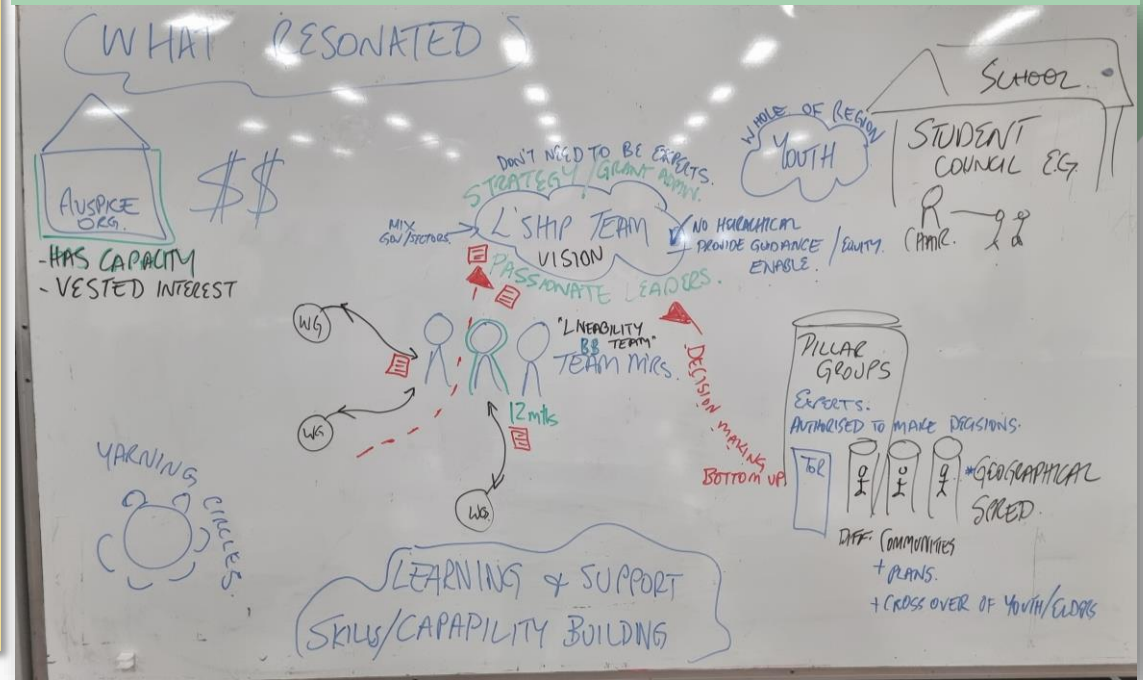 WHAT RESONATED
AUSPICE
ORG.
$$
-HAS CAPACITY
- VESTED INTEREST
DON'T NEED TO BE EXPERTS.
STRATEGY / GRANT ADMIN.
MIX
GOV/SECTORS.
L'SHIP TEAM
VISION
PASSIONATE LEADERS.
NO HERARCHICAL
PROVIDE GUIDANCE / EQUITY.
ENABLE.
WHOLE OF REGION
YOUTH
SCHOOL
STUDENT
COUNCIL EG.
CHAIR.
WG
WG
WG
"LIVEABILITY
BB TEAM"
TEAM MRS.
12mths
DECISION MAKING
BOTTOM UP
PILLAR
GROUPS
EXPERTS.
AUTHORISED TO MAKE DECISIONS.
TOR
*GEOGRAPHICAL
SPRED.
DIFF. COMMUNITIES
+ PLANS.
+ CROSS OVER OF YOUTH/ELDERS
YARNING CIRCLES.
LEARNING & SUPPORT
SKILLS/CAPAPILITY BUILDING